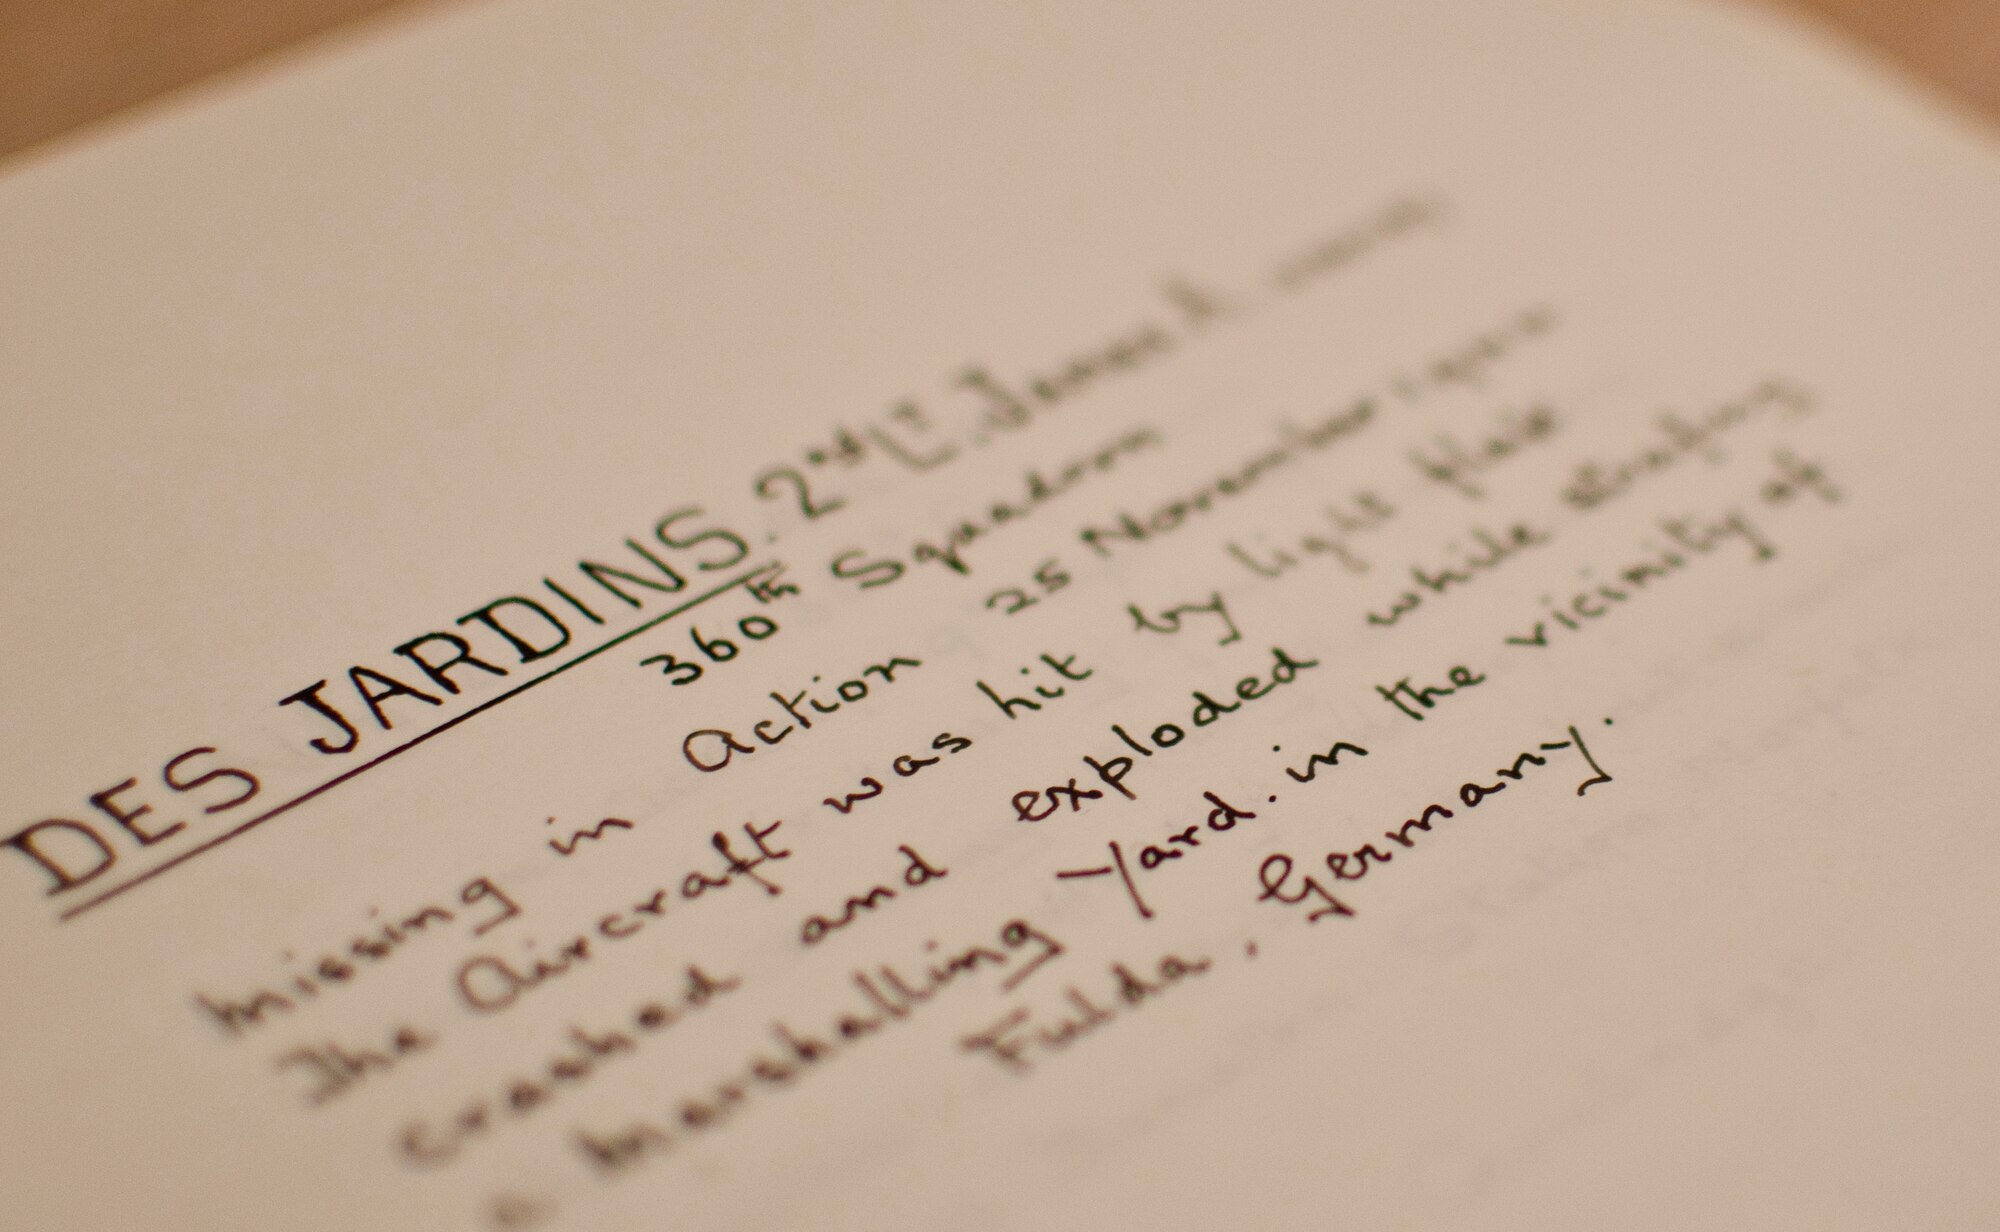 DES JARDINS. 2nd Lt. Joseph
360th Squadron
Missing in Action 25 November
The Aircraft was hit by light flak
crashed and exploded while strafing
a Marshalling Yard. in the vicinity of
Fulda, Germany.